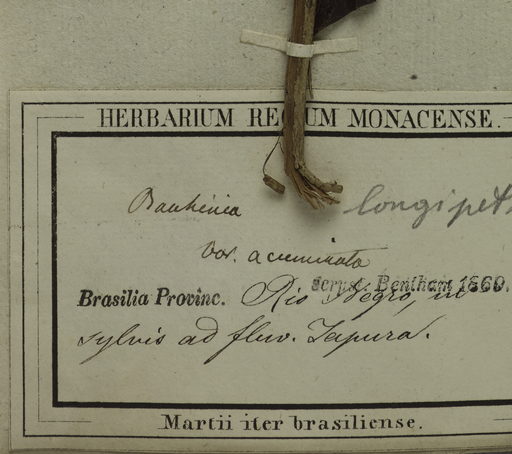 HERBARIUM REGIUM MONACENSE.
Bauhinia longipet
var. acuminata
scripst. Bentham 1860.
Brasilia Provinc. Rio Negro, in
sylvis ad fluv. Japura.
Martii iter brasiliense.